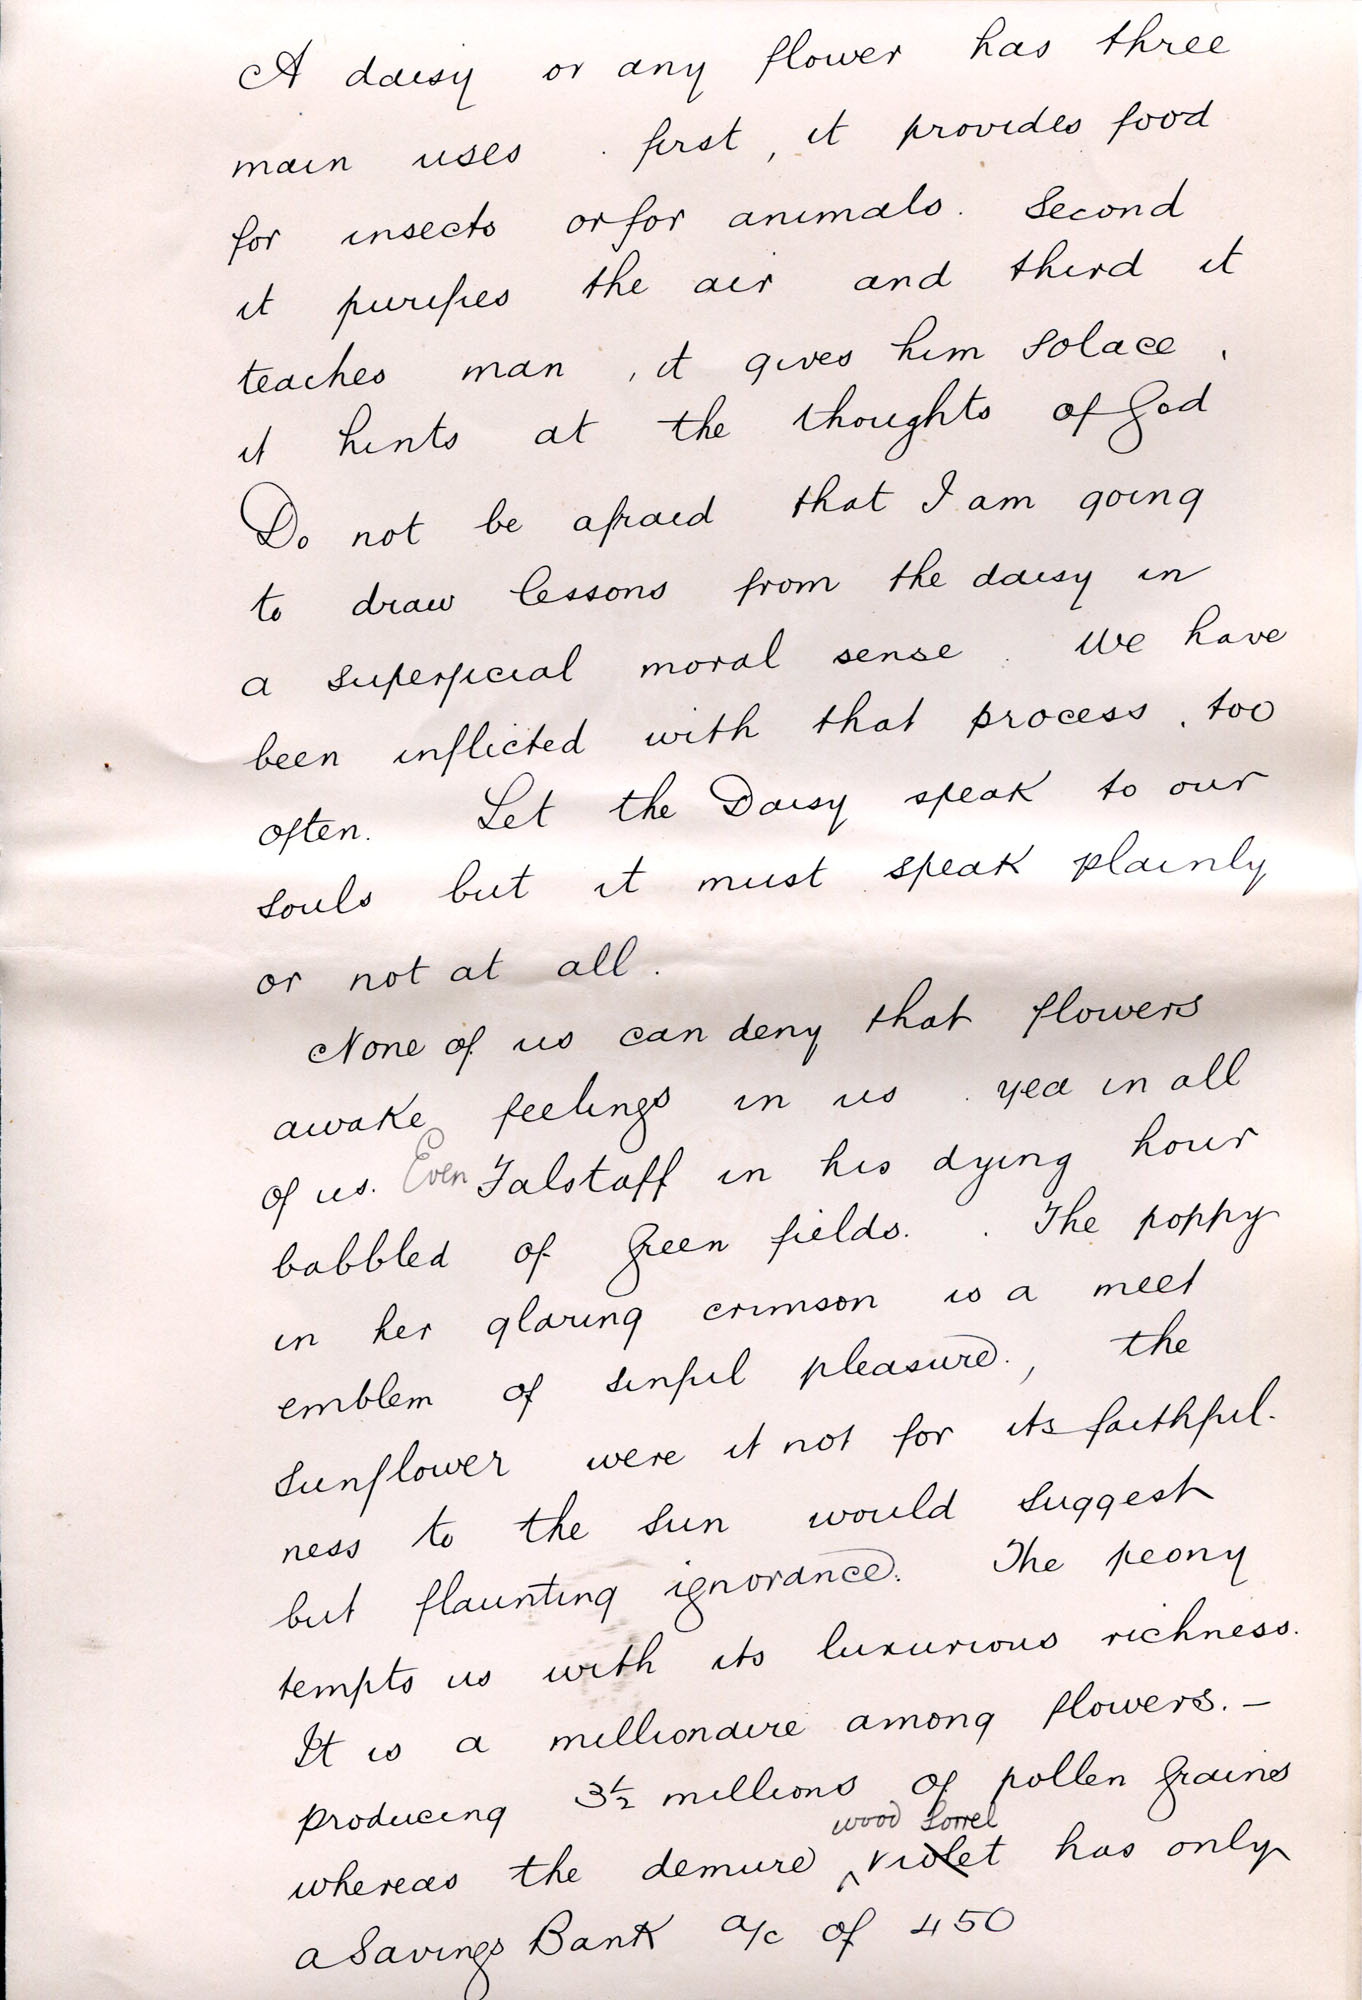 A daisy or any flower has three
main uses . first, it provides food
for insects or for animals. Second
it purifies the air and third it
teaches man, it gives him solace,
it hints at the thoughts of God
Do not be afraid that I am going
to draw lessons from the daisy in
a superficial moral sense. We have
been inflicted with that process, too
often. Let the Daisy speak to our
souls but it must speak plainly
or not at all.
None of us can deny that flowers
awake feelings in us . yea in all
of us. Even Falstaff in his dying hour
babbled of green fields. . The poppy
in her glaring crimson is a meet
emblem of sinful pleasure., the
sunflower were it not for its faithful-
ness to the sun would suggest
but flaunting ignorance. The peony
tempts us with its luxurious richness.
It is a millionaire among flowers. —
producing 3½ millions of pollen grains
wood Sorrel
whereas the demure ^ violet has only
a Savings Bank a/c of 450